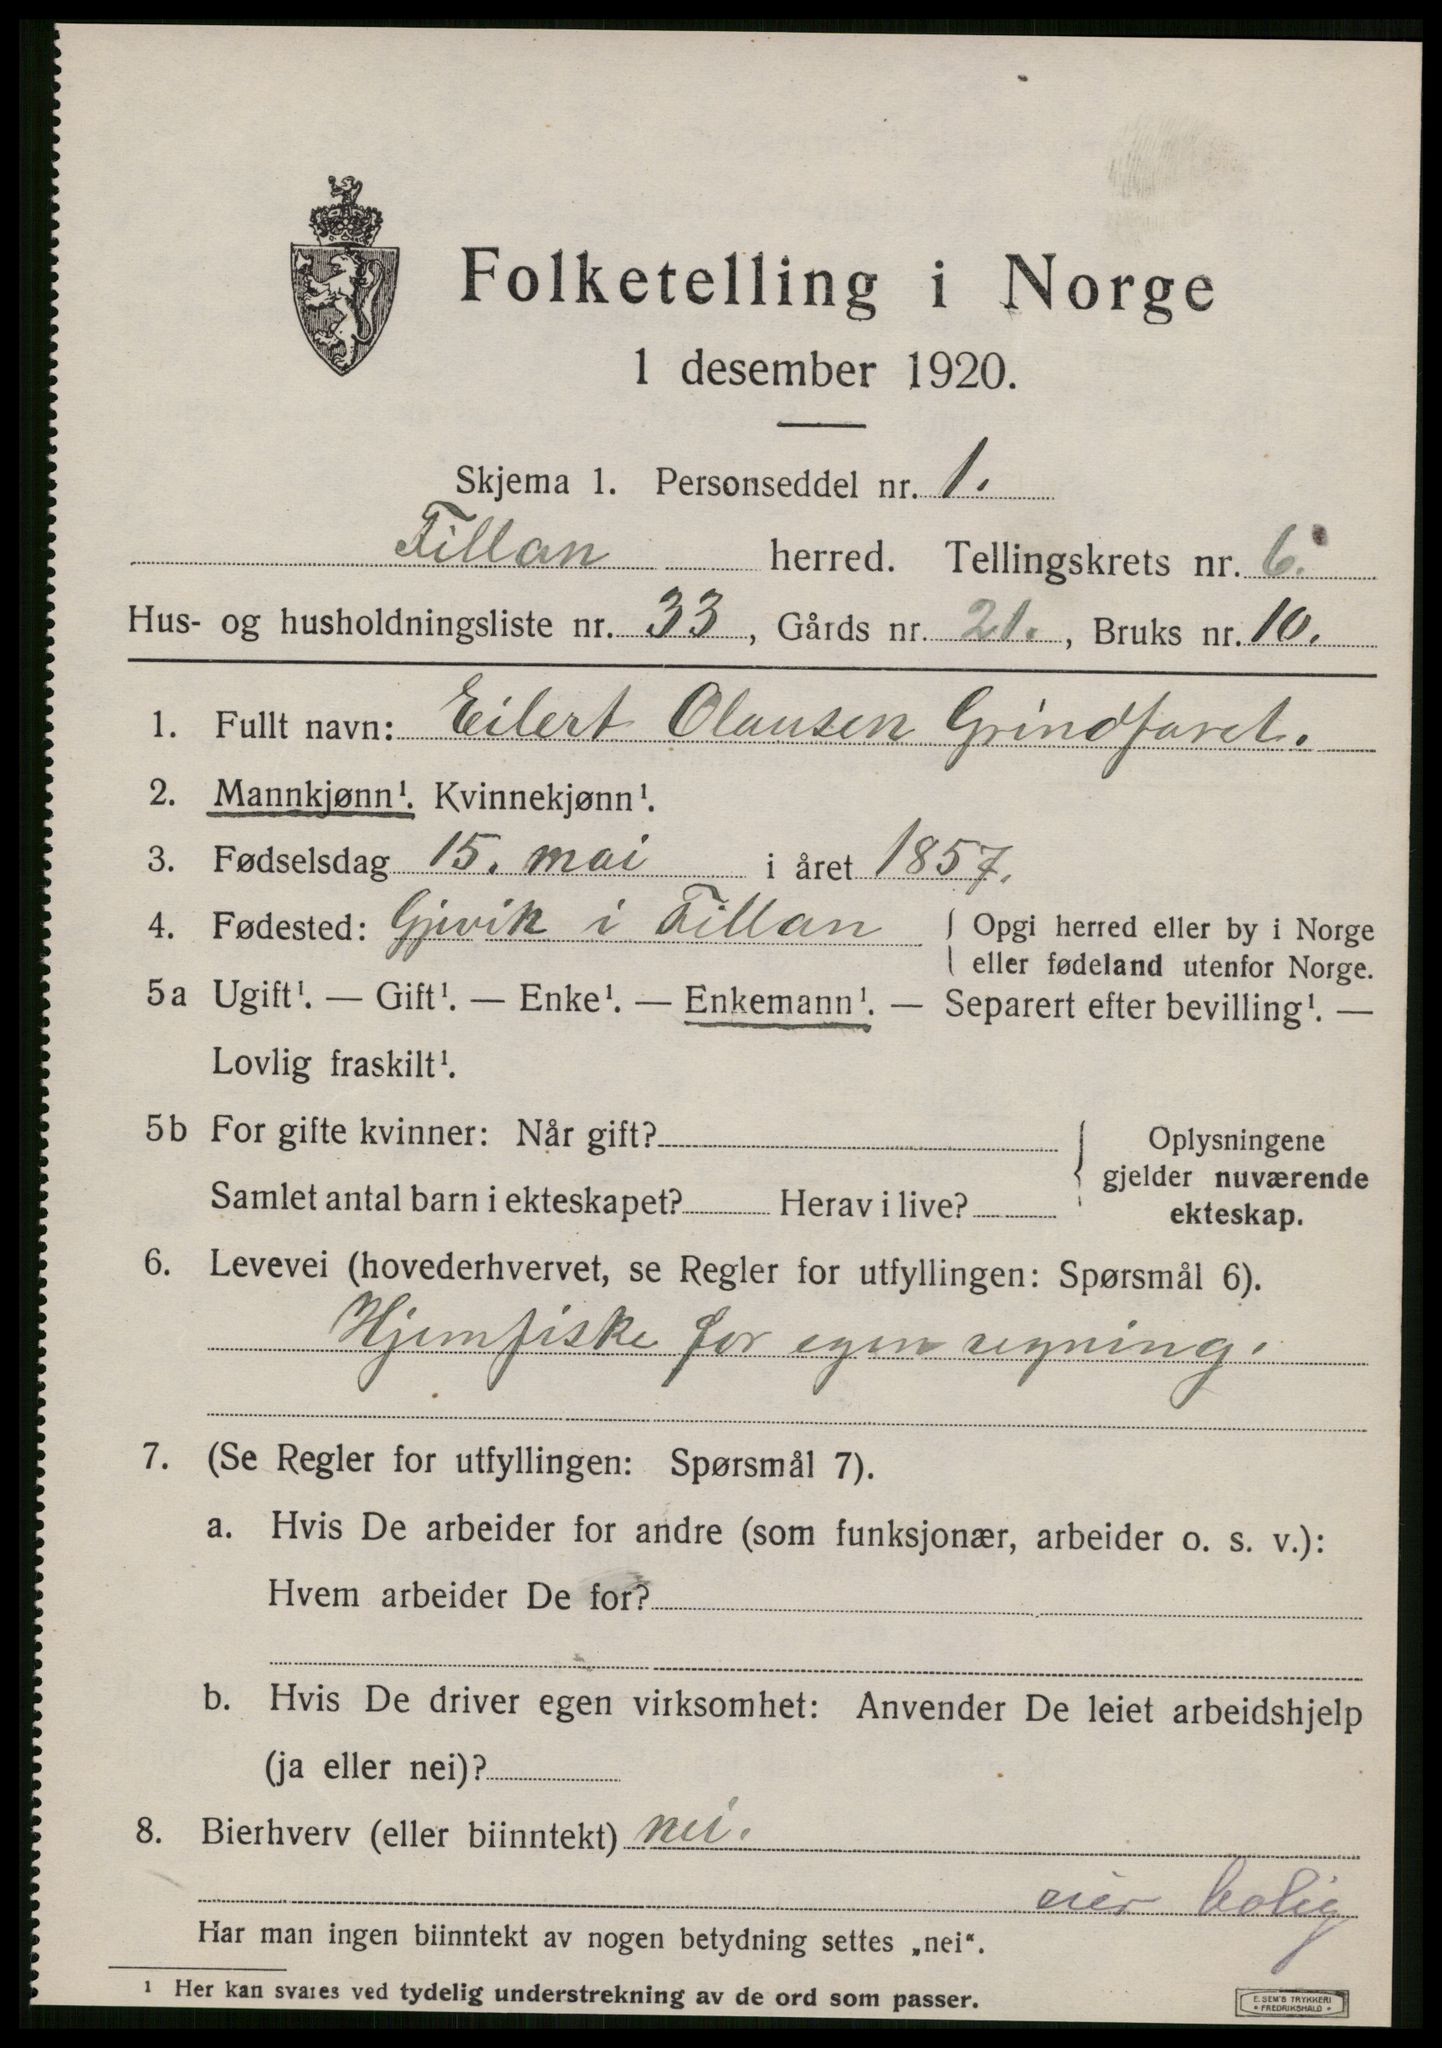 Folketelling i Norge
1 desember 1920.
Skjema 1. Personseddel nr. 1.
Fillan herred. Tellingskrets nr. 6.
Hus- og husholdningsliste nr. 33, Gårds nr. 21., Bruks nr. 10.
1. Fullt navn: Eilert Olausen Grindfaret.
2. Mannkjønn¹. Kvinnekjønn¹.
3. Fødselsdag 15. mai i året 1857.
4. Fødested: Gjevik i Fillan { Opgi herred eller by i Norge
eller fødeland utenfor Norge.
5a Ugift¹. — Gift¹. — Enke¹. — Enkemann¹. — Separert efter bevilling¹. —
Lovlig fraskilt¹.
5b For gifte kvinner: Når gift?
Samlet antal barn i ekteskapet? Herav i live?
{ Oplysningene
gjelder nuværende
ekteskap.
6. Levevei (hovederhvervet, se Regler for utfyllingen: Spørsmål 6).
Hjemfiske for egen regning.
7. (Se Regler for utfyllingen: Spørsmål 7).
a. Hvis De arbeider for andre (som funksjonær, arbeider o. s. v.):
Hvem arbeider De for?
b. Hvis De driver egen virksomhet: Anvender De leiet arbeidshjelp
(ja eller nei)?
8. Bierhverv (eller biinntekt) nei.
eier bolig
Har man ingen biinntekt av nogen betydning settes „nei“.
¹ Her kan svares ved tydelig understrekning av de ord som passer.
E. SEM'S TRYKKERI
FREDRIKSHALD